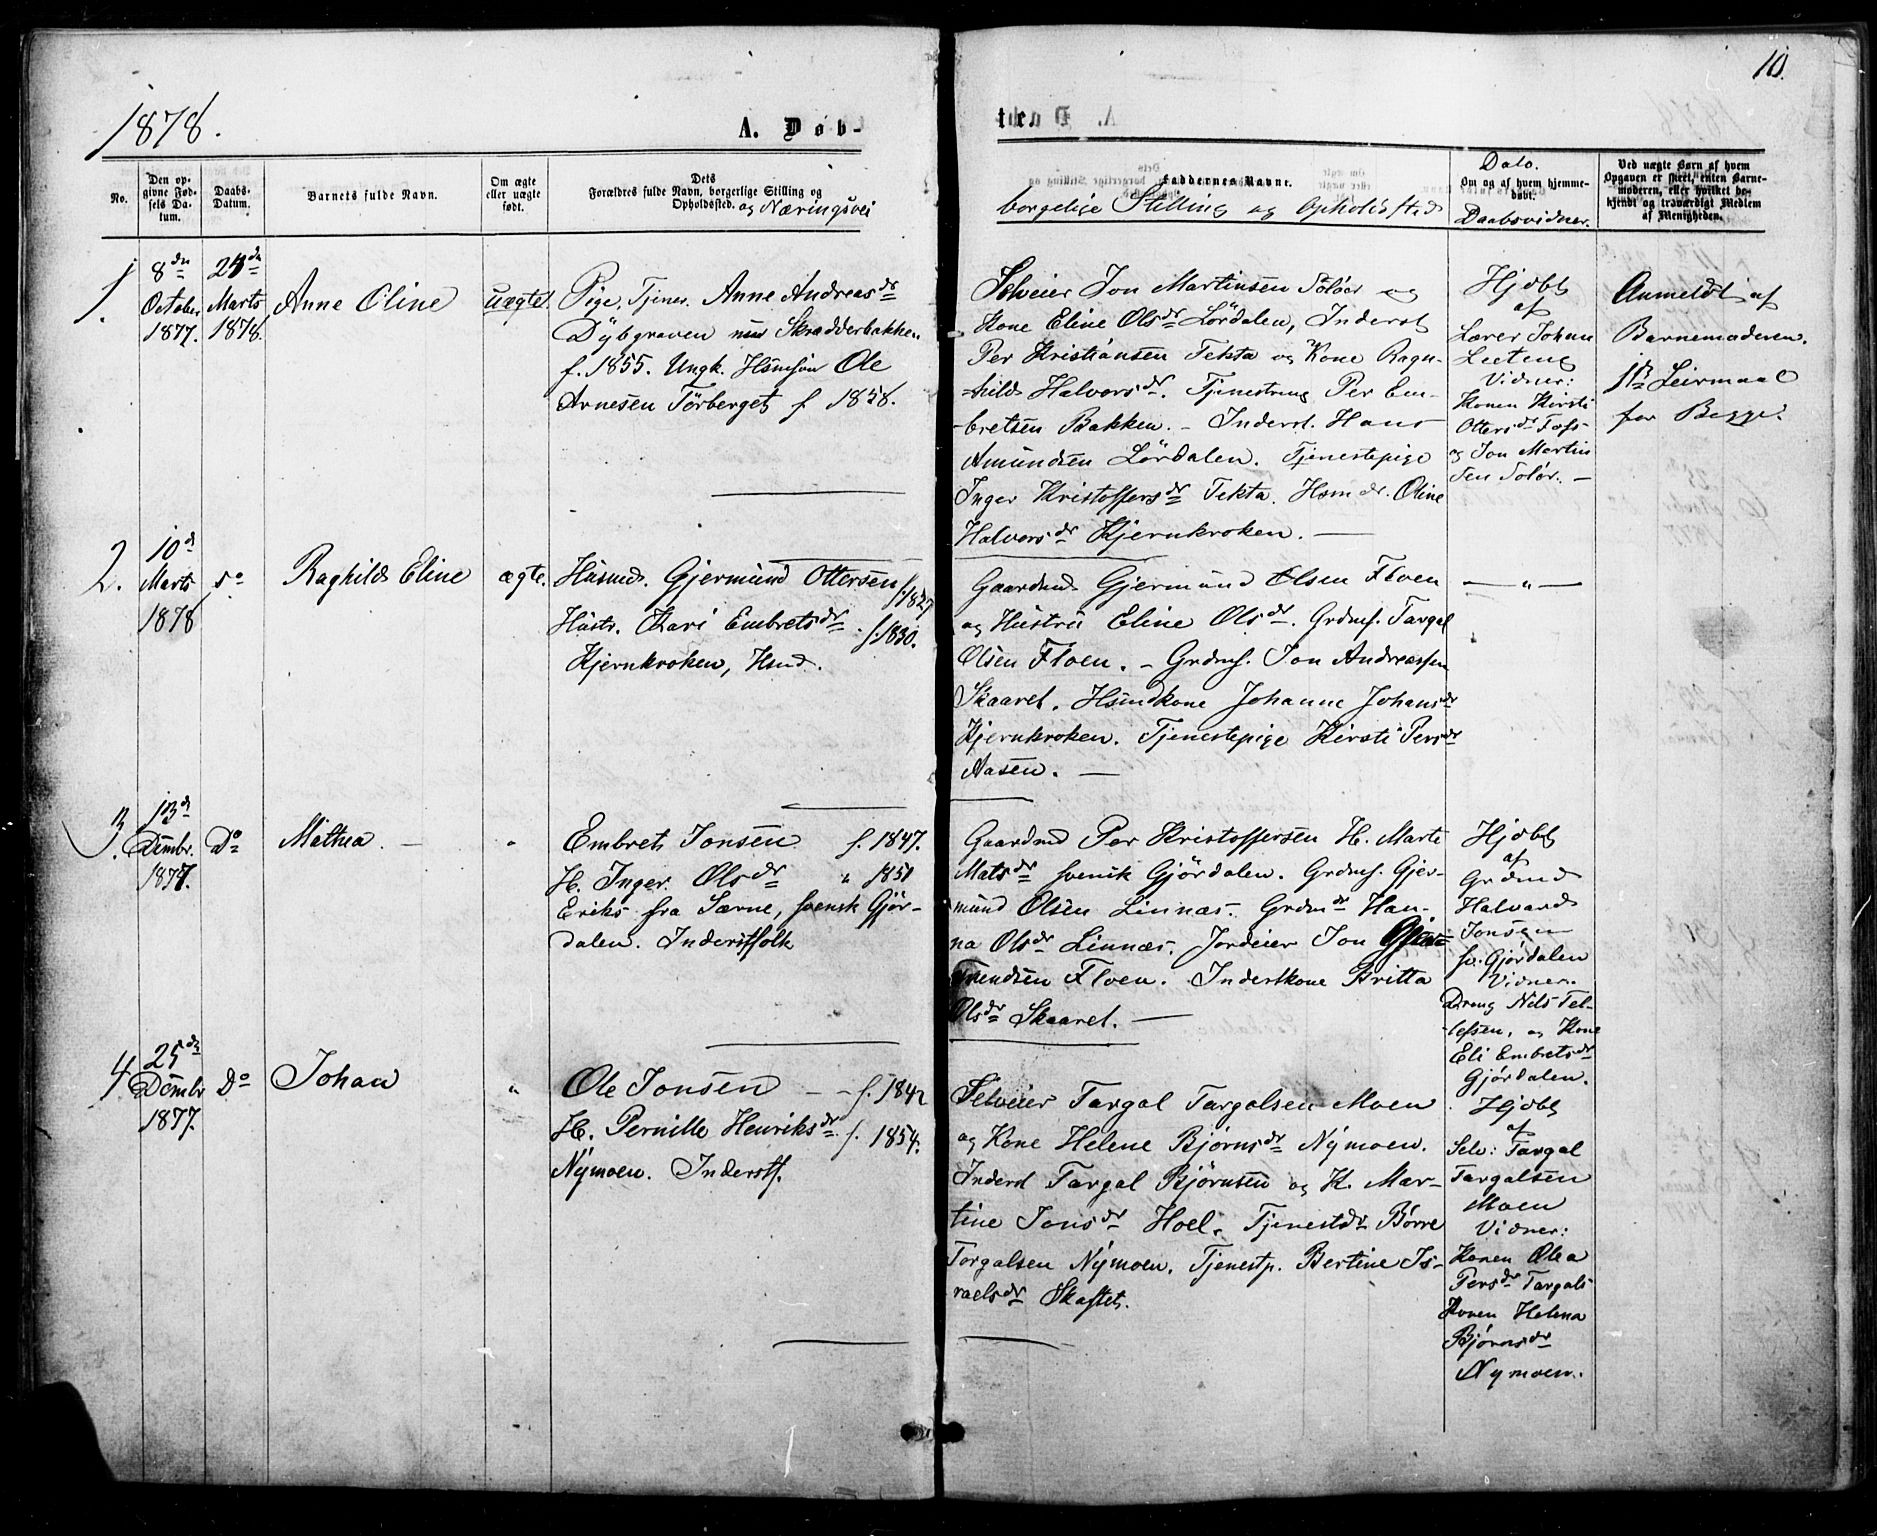 10.
1878.
A. Døb-
te.
No.
Den op-
givne Fød-
sels Da-
tum.
Daabs-
Datum.
Barnets fulde Navn.
Om ægte
eller uægte
født.
Dets
Forældres fulde Navn, borgerlige Stilling og
Opholdssted. og Næringsvei
Faddernes Navne.
borgelige Stilling og Opholdssted
Dato.
Om og af hvem hjemme-
døbt.
Daabsvidner.
Ved uægte Børn af hvem
Opgaven er skeet, enten Barne-
moderen, eller hvilket be-
kjendt og troværdigt Medlem
af Menigheden.
1.
8de
October
1877.
24de
Marts
1878.
Anne Oline
uægte.
Pige, Tjener. Anne Andreasdr
Dybgraven Skrædderbakken
f. 1855. Ungk. Hsmsøn Ole
Arnesen Törberget f. 1858.
Selveier Jon Martinsen Solöer og
Kone Eline Olsdr Lørdalen, Inderst
Per Kristiansen Tekta og Kone Ragn-
hild Halvorsdr. Tjenestreng Per Em-
bretsen Bakken. - Inderst. Hans
Amundsen Lördalen. Tjenestepige
Inger Kristoffersdr Tekta. Hsmdr. Oline
Halvorsdr Kjernkroken. —
Hjdbt
af
Lærer Johan
Leeteng
Vidner:
Konen Kirsti
Ottersdr Foss
og Jon Martin
sen Solör. —
Anmeldt af
Barnemoderen.
1ste Leiermaal
for Begge.
2.
10de
Marts
1878
Do
Raghild Eline
ægte.
Husmd. Gjermund Ottersen f. 1827
Hustr. Kari Embretsdr f. 1830.
Kjernkroken, Hsmd.
Gaardmd Gjermund Olsen Floen
og Hustru Eline Olsdr. Grdmf. Targal
Olsen Floen. - Grdmf. Jon Andreassen
Skaaret. Hsmdkone Johanne Johansdr
Kjernkroken. Tjenestepige Kirsti Persdr
Aasen. —
— " —
3.
13de
Dcmbr.
1877.
Do
Mathea. —
"
Embret Jonsen f. 1847.
H. Inger Olsdr " 1851
Eriks fra Særne, svensk Gjör-
dalen. Inderstfolk
Gaardmd Per Kristoffersen H. Marte
Matsdr svensk Gjördalen. Grdmf. Gjer-
mund Olsen Linnæs. Grdmdr Han-
na Olsdr Linnæs. Jordeier Jon Gjer-
mundsen Floen. Inderstkone Britta
Olsdr Skaaret. —
Hjdbt
af
Grdmd
Halvard
Jonsen
sv. Gjördalen
Vidner.
Dreng Nils Tel-
lefsen, og Kone
Eli Embretsdr
Gjørdalen.
4.
25de
Dcmbr
1877.
Do
Johan
"
Ole Jonsen — f. 1842
H. Pernille Henriksdr f. 1854.
Nymoen. Inderstf.
Selveier Targal Targalsen Moen
og Kone Helene Bjørnsdr Nymoen.
Inderst Targal Bjørnsen og K. Mar-
tine Jonsdr Hoel. Tjenestdr Börre
Torgalsen Nymoen. Tjenestp. Bertine Is-
raelsdr Skaftet.
Hjdbt
af
Selv: Targal
Targalsen
Moen
Vidner:
Konen Olea
Persdr Targals
Konen Helena
Bjørnsdr
Nymoen.